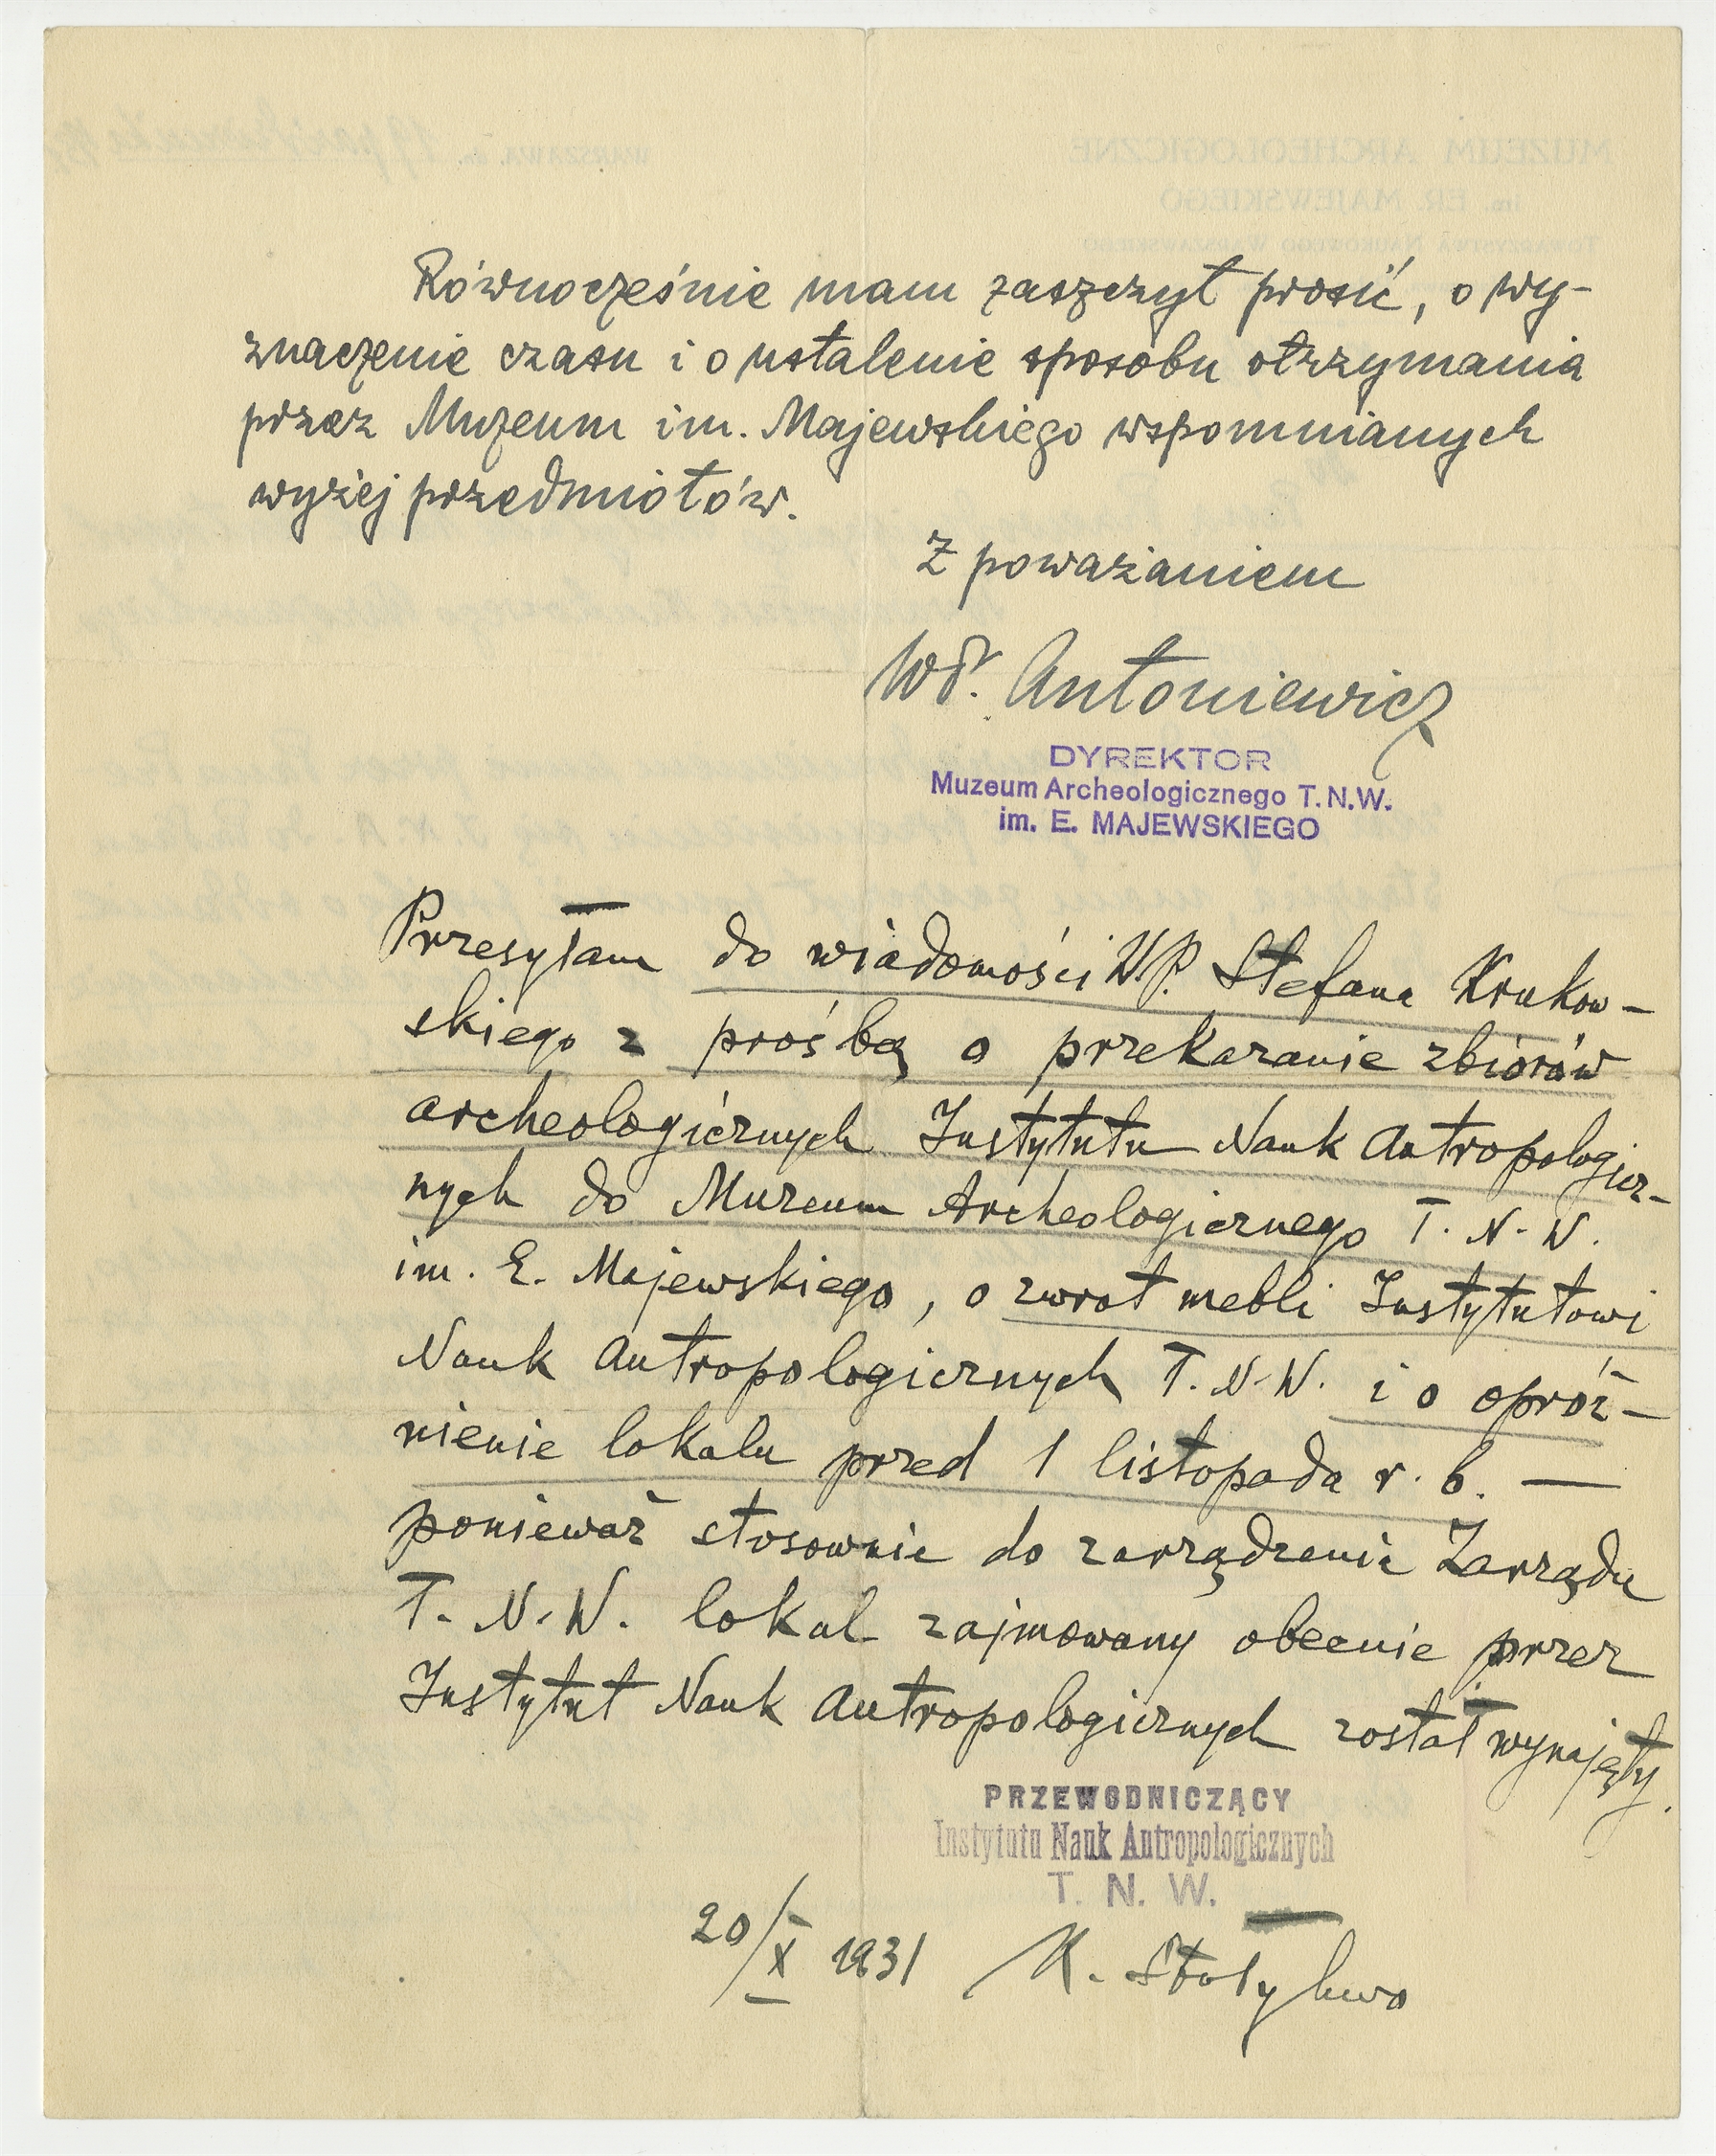 Równocześnie mam zaszczyt prosić, o wy-
znaczenie czasu i o ustalenie sposobu otrzymania
przez Muzeum im. Majewskiego wspomnianych
wyżej przedmiotów.
Z poważaniem
Wł. Antoniewicz
DYREKTOR
Muzeum Archeologicznego T.N.W.
im. E. MAJEWSKIEGO
Przesyłam do wiadomości W.P. Stefana Krukow-
skiego z prośbą o przekazanie zbiorów
archeologicznych Instytutu Nauk Antropologicz-
nych do Muzeum Archeologicznego T. N. W.
im. E. Majewskiego, o zwrot mebli Instytutowi
Nauk Antropologicznych T. N. W. i o opróż-
nienie lokalu przed 1 listopada r. b. —
ponieważ stosownie do zarządzenia Zarządu
T. N. W. lokal zajmowany obecnie przez
Instytut Nauk Antropologicznych został wynajęty.
PRZEWODNICZĄCY
Instytutu Nauk Antropologicznych
T. N. W.
20/X 1931 K. Stołyhwo